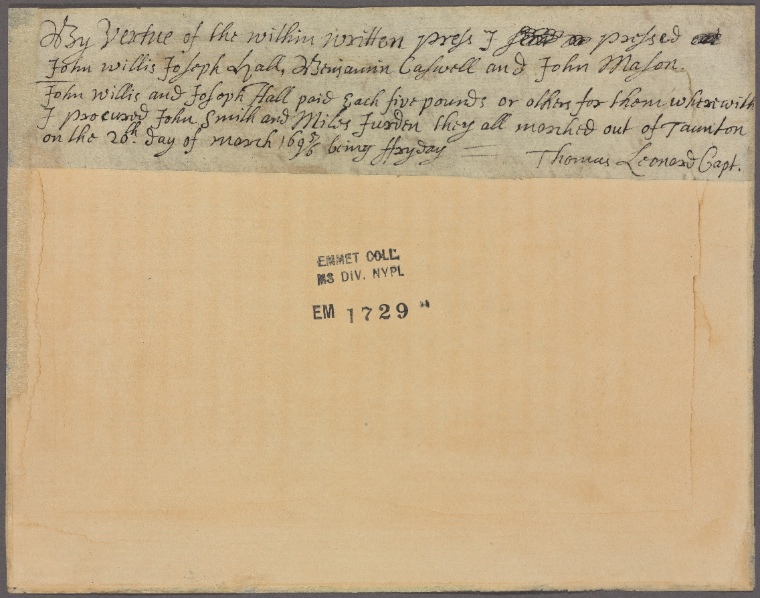 By Vertue of the within written press I pressed
John willis Joseph Hall, Benjamin Caswell and John Mason.
John Willis and Joseph Hall paid Each five pounds or others for them wherewith
I procured John Smith and Miles Jurden they all marched out of Taunton
on the 26th day of march 169 5/6 being ffryday — Thomas Leonard Capt.
EMMET COLL.
MS DIV. NYPL
EM 1729